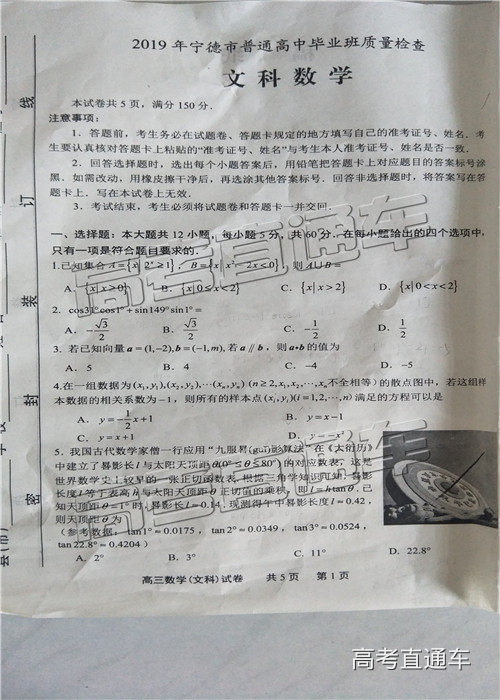 2019 年宁德市普通高中毕业班质量检查
文科数学
本试卷共 5 页，满分 150 分．
注意事项：
1．答题前，考生务必在试题卷、答题卡规定的地方填写自己的准考证号、姓名．考
生要认真核对答题卡上粘贴的“准考证号、姓名”与考生本人准考证号、姓名是否一致．
2．回答选择题时，选出每个小题答案后，用铅笔把答题卡上对应题目的答案标号涂
黑．如需改动，用橡皮擦干净后，再选涂其他答案标号．回答非选择题时，将答案写在答
题卡上．写在本试卷上无效．
3．考试结束，考生必须将试题卷和答题卡一并交回．
一、选择题：本大题共 12 小题，每小题 5 分，共 60 分．在每小题给出的四个选项中，
只有一项是符合题目要求的．
1.已知集合 A={x|2^x≥1}，B={x|x²−2x<0}，则 A∪B=
A．{x|x≥0} B．{x|0≤x<2} C．{x|x>2} D．{x|0<x<2}
2．cos31°cos1°+sin149°sin1°=
A．−√3/2 B．√3/2 C．−1/2 D．1/2
3．若已知向量 a=(1,−2),b=(−1,m),若 a∥b，则 a•b 的值为
A．5 B．4 C．−4 D．−5
4.在一组数据为(x₁,y₁),(x₂,y₂),⋯(xₙ,yₙ) (n≥2,x₁,x₂,⋯,xₙ不全相等)的散点图中，若这组样
本数据的相关系数为−1，则所有的样本点(xᵢ,yᵢ)(i=1,2,⋯,n)满足的方程可以是
A．y=−1/2x+1 B．y=x−1
C．y=x+1 D．y=−x²
5．我国古代数学家僧一行应用“九服晷(guǐ)影算法”在《大衍历》
中建立了晷影长 l 与太阳天顶距 θ(0°≤θ≤80°)的对应数表，这是
世界数学史上较早的一张正切函数表．根据三角学知识可知，晷影
长度 l 等于表高 h 与太阳天顶距 θ 正切值的乘积，即 l=h tanθ．已
知天顶距 θ=1°时，晷影长 l≈0.14．现测得午中晷影长度 l≈0.42，
则天顶距 θ 为
（参考数据，tan1°≈0.0175，tan2°≈0.0349，tan3°≈0.0524，
tan22.8°≈0.4204）
A．2° B．3° C．11° D．22.8°
高三数学(文科)试卷 共 5 页 第 1 页
线
订
装
封
密
高考直通车
高考直通车
高考直通车